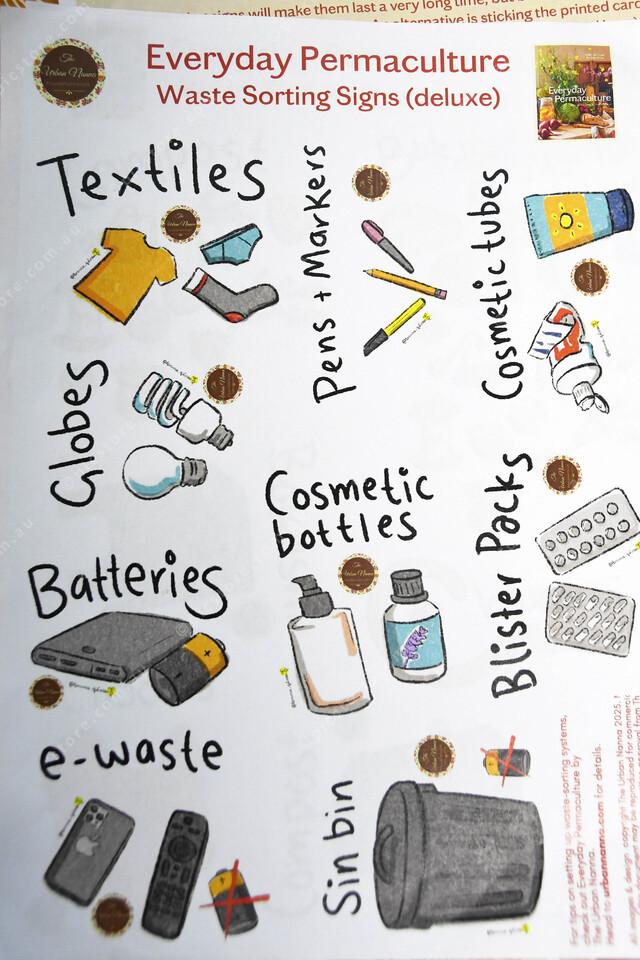 signs will make them last a very long time, but
alternative is sticking the printed card
The
Urban Nanna
Everyday Permaculture
Waste Sorting Signs (deluxe)
Everyday
Permaculture
Textiles
Pens + Markers
Cosmetic tubes
Globes
Cosmetic
bottles
Blister Packs
Batteries
e-waste
Sin bin
For tips on setting up waste-sorting systems,
check out Everyday Permaculture by
The Urban Nanna.
Head to urbannanna.com for details.
All images & design copyright The Urban Nanna 2025.
may be reproduced for commercial